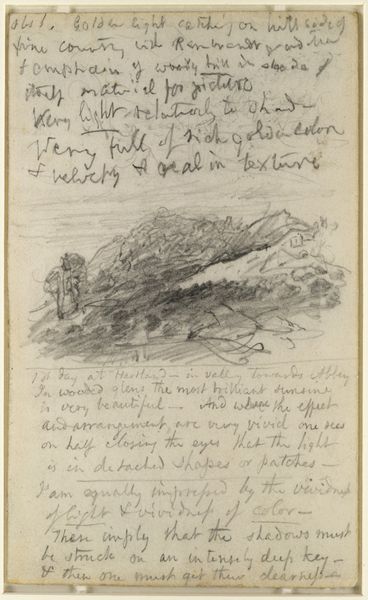 Golden light catching on hill side of
fine country with Rembrandt
& emphasis of woody hill in shade
stuff material for picture
Very light relatively to shade
Very full of rich golden color
& velvety & real in texture
1st day at Hartland - in valley towards Abbey
In wooded glens the most brilliant sunshine
is very beautiful - And where the effect
and arrangement are very vivid one sees
on half closing the eyes that the light
is in detached shapes or patches -
I am equally impressed by the vividness
of light & vividness of color -
These imply that the shadows must
be struck on an intensely deep key -
& then one must get their clearness -